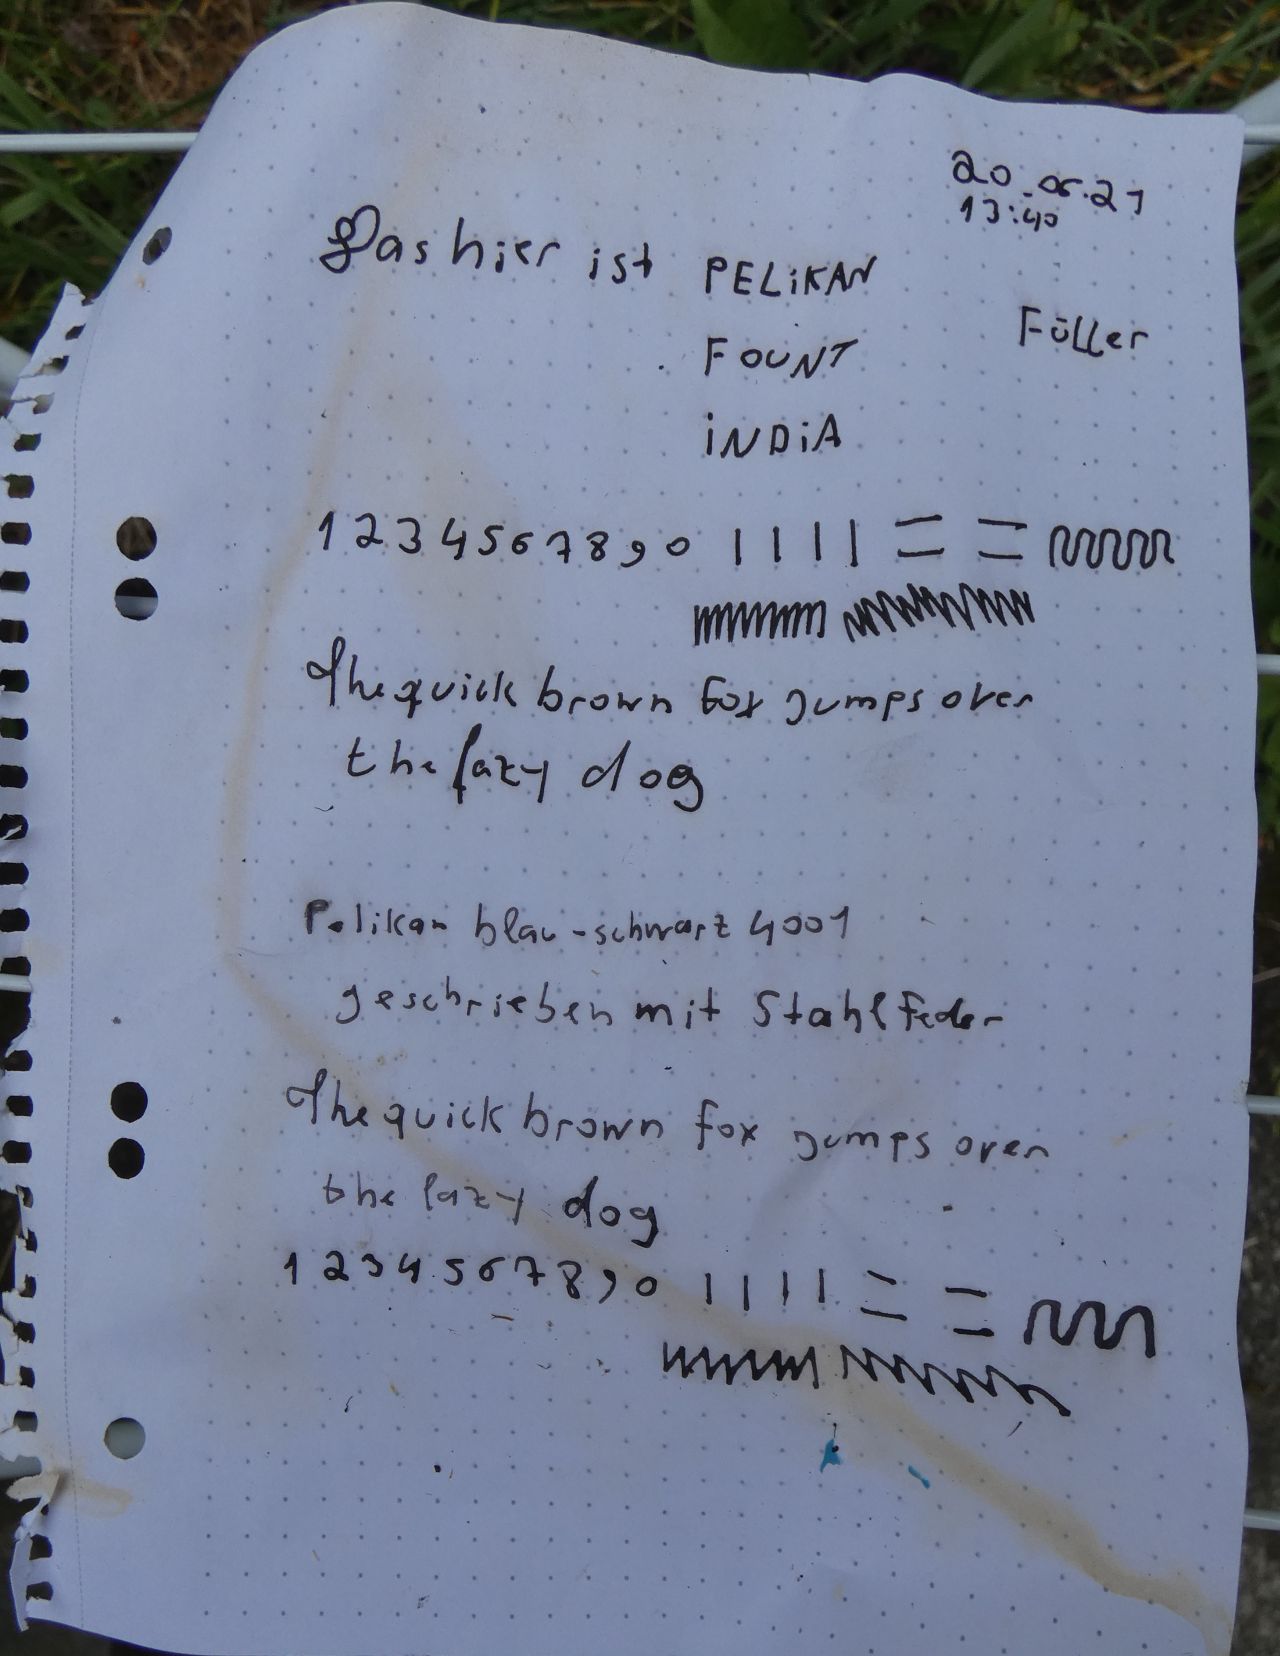 20.06.21
13:40
Das hier ist PELiKAN
Füller
FOUNT
iNDiA
1 2 3 4 5 6 7 8 9 0
The quick brown fox jumps over
the lazy dog
Pelikan blau-schwarz 4001
geschrieben mit Stahlfeder
The quick brown fox jumps over
the lazy dog
1 2 3 4 5 6 7 8 9 0